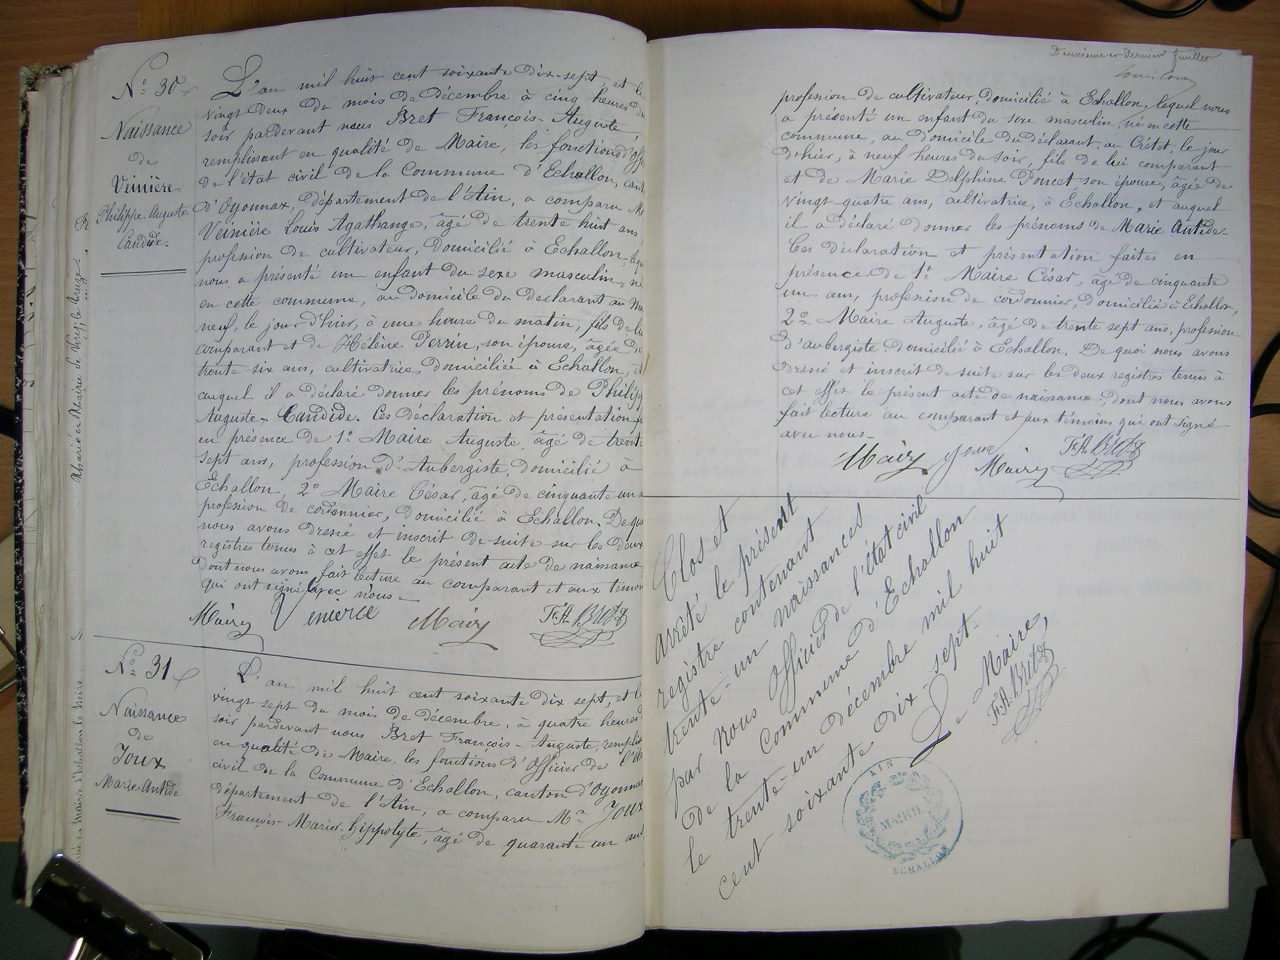 N° 30
Naissance
de
Veinière
Philippe Auguste
Candide.
L'an mil huit cent soixante dix-sept, et le
vingt deux du mois de décembre à cinq heures du
soir pardevant nous Bret François-Auguste
remplissant en qualité de Maire, les fonctions d'offi
de l'état civil de la Commune d'Echallon, cant
d'Oyonnax, département de l'Ain, a comparu M
Veinière Louis Agathange, âgé de trente huit ans
profession de cultivateur, domicilié à Echallon,
nous a présenté un enfant du sexe masculin, né
en cette commune, au domicile du déclarant au
neuf, le jour d'hier, à une heure du matin, fils de lui
comparant et de Hélène Perrin, son épouse, âgée de
trente six ans, cultivatrice, domiciliée à Echallon,
auquel il a déclaré donner les prénoms de Philipp
Auguste-Candide. Ces déclaration et présentation
en présence de 1° Maire Auguste, âgé de trente
sept ans, profession d'Aubergiste, domicilié à
Echallon, 2° Maire César, âgé de cinquante un
profession de cordonnier, domicilié à Echallon. De quoi
nous avons dressé et inscrit de suite sur les deux
registres tenus à cet effet le présent acte de naissance
dont nous avons fait lecture au comparant et aux témoins
qui ont signé avec nous.
Mairy Mairy F.A. Bret
N° 31
Naissance
de
Joux
Marie-Antide
L'an mil huit cent soixante dix sept, et le
vingt sept du mois de décembre, à quatre heures
soir pardevant nous Bret François-Auguste, rempliss
en qualité de Maire, les fonctions d'officier de l'ét
civil de la Commune d'Echallon, canton d'Oyonnax
département de l'Ain, a comparu Mr Joux
François Marie Hippolyte, âgé de quarante un ans
Deuxième et dernier feuillet
profession de cultivateur, domicilié à Echallon, lequel nous
a présenté un enfant du sexe masculin, né en cette
commune, au domicile du déclarant, au Crétet, le jour
d'hier, à neuf heures du soir, fils de lui comparant
et de Marie Delphine Poncet son épouse, âgée de
vingt quatre ans, cultivatrice, à Echallon, et auquel
il a déclaré donner les prénoms de Marie Antide.
Ces déclaration et présentation faites en
présence de 1° Maire César, âgé de cinquante
un ans, profession de cordonnier, domicilié à Echallon,
2° Maire Auguste, âgé de trente sept ans, profession
d'aubergiste, domicilié à Echallon. De quoi nous avons
dressé et inscrit de suite sur les deux registres tenus à
cet effet le présent acte de naissance dont nous avons
fait lecture au comparant et aux témoins qui ont signé
avec nous.
Mairy Joux Mairy F.A. Bret
Clos et
arrêté le présent
registre contenant
trente-un naissances
par nous officier de l'état civil
de la Commune d'Echallon
le trente-un décembre mil huit
cent soixante dix-sept.
Le Maire,
F.A. Bret
AIN
MAIRIE
ECHALLON